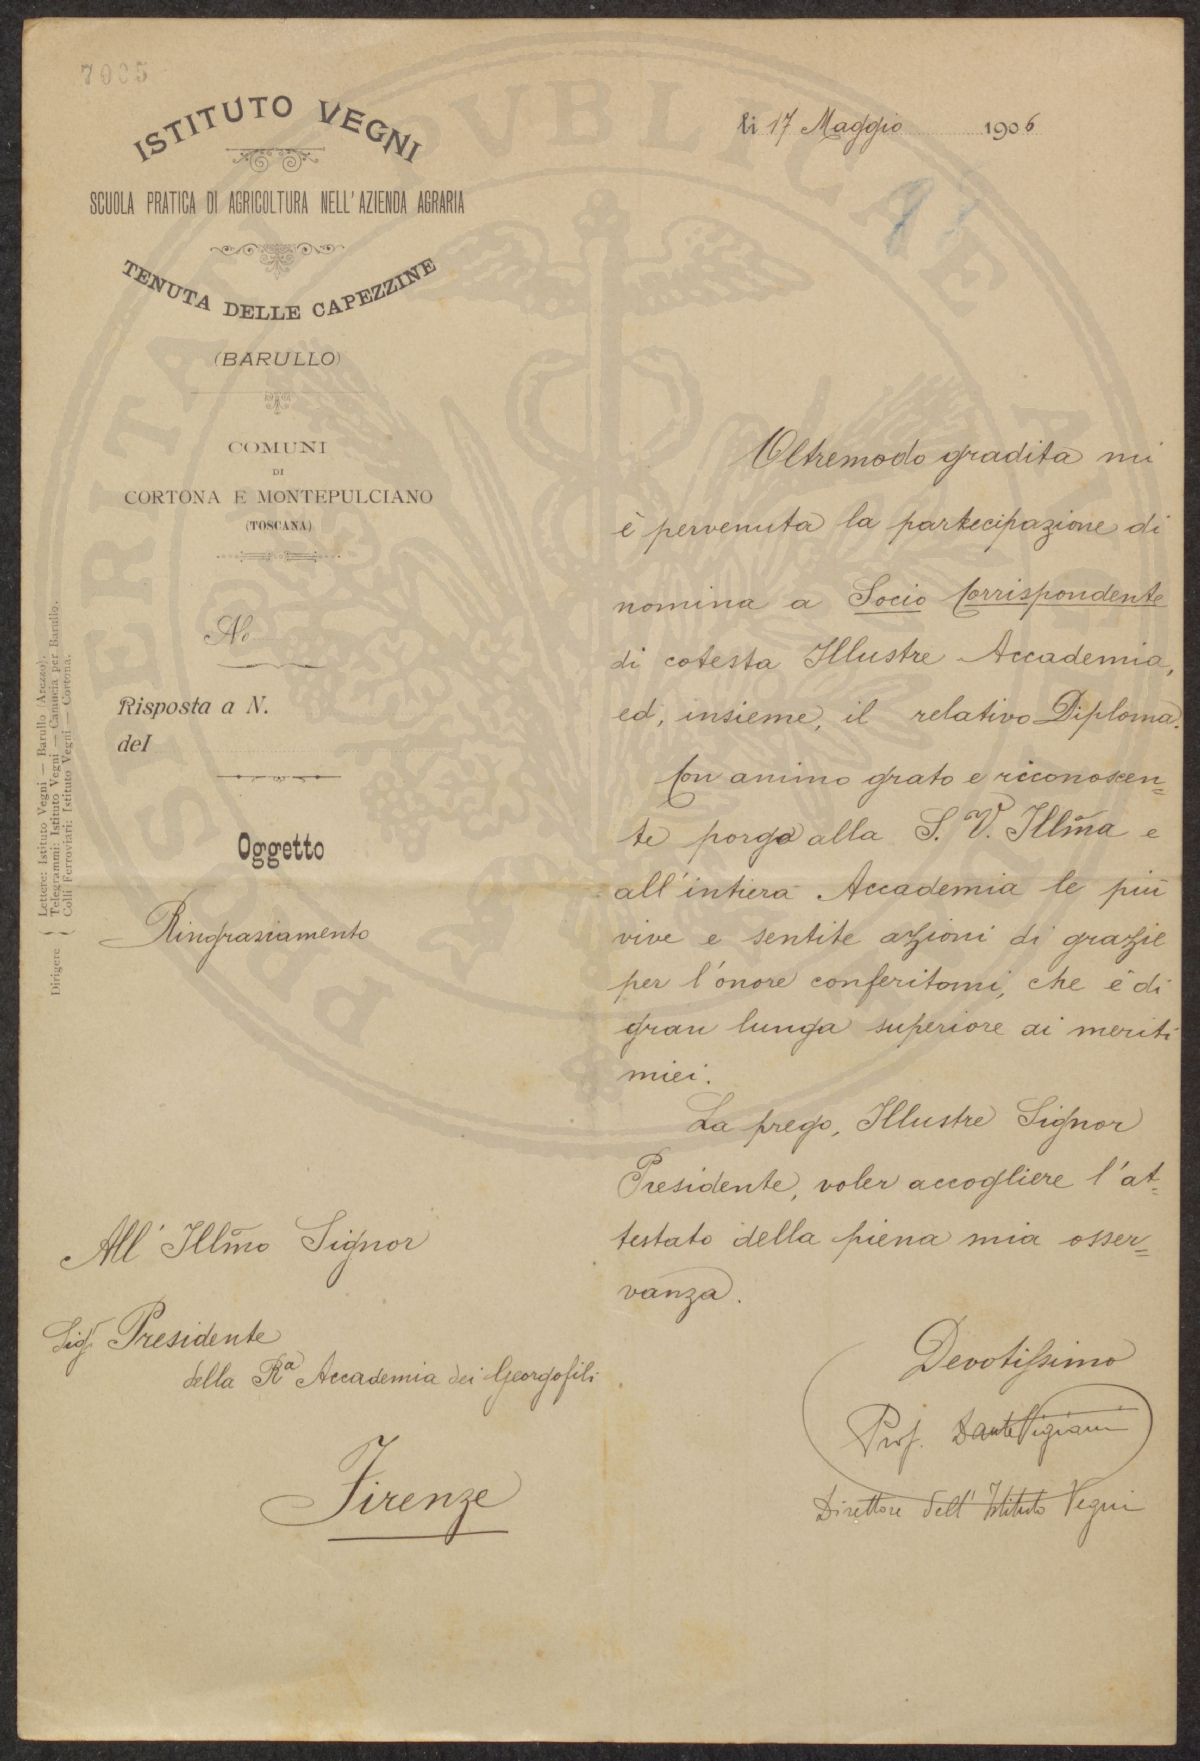 7005
ISTITUTO VEGNI
SCUOLA PRATICA DI AGRICOLTURA NELL'AZIENDA AGRARIA
TENUTA DELLE CAPEZZINE
(BARULLO)
COMUNI
DI
CORTONA E MONTEPULCIANO
(TOSCANA)
No
Risposta a N.
del
Oggetto
Ringraziamento
Dirigere { Lettere: Istituto Vegni — Barullo (Arezzo).
Telegrammi: Istituto Vegni — Camucia per Barullo.
Colli Ferroviari: Istituto Vegni — Cortona.
All' Illmo Signor
Sigr Presidente
della Ra Accademia dei Georgofili
Firenze
li 17 Maggio 1906
Oltremodo gradita mi
è pervenuta la partecipazione di
nomina a Socio Corrispondente
di cotesta Illustre Accademia,
ed, insieme, il relativo Diploma.
Con animo grato e riconoscen=
te porgo alla S. V. Illma e
all'intiera Accademia le più
vive e sentite azioni di grazie
per l'onore conferitomi, che è di
gran lunga superiore ai meriti
miei.
La prego, Illustre Signor
Presidente, voler accogliere l'at=
testato della piena mia osser=
vanza.
Devotissimo
Prof. Dante Vigiani
Direttore dell' Istituto Vegni
PROSPERITATI PVBLICAE AVGENDAE